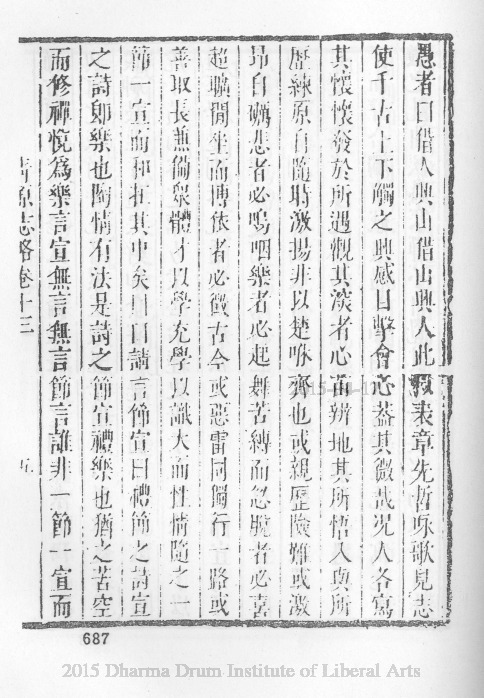 愚者曰借人與山借山與人此㝡表章先哲咏歌見志
使千古上下觸之興感目擊會心葢其微哉况人各寫
其懷懷發於所遇觀其深者心而辨地其所悟入真所
歷練原自隨時激揚非以楚咻齊也或親歷險難或激
昂自礪悲者必嗚咽樂者必起舞苦縛而忽脫者必喜
超曠閒坐而博依者必徵古今或惡雷同獨行一路或
善取長兼備衆體才以學充學以識大而性情隨之一
節一宣而和在其中矣曰詩言節宣曰禮節之詩宣
之詩卽樂也陶情有法是詩之節宣禮樂也猶之苦空
而修禪悅爲樂言宣無言無言節言誰非一節一宣而
青原志略卷十三
九
687
2015 Dharma Drum Institute of Liberal Arts